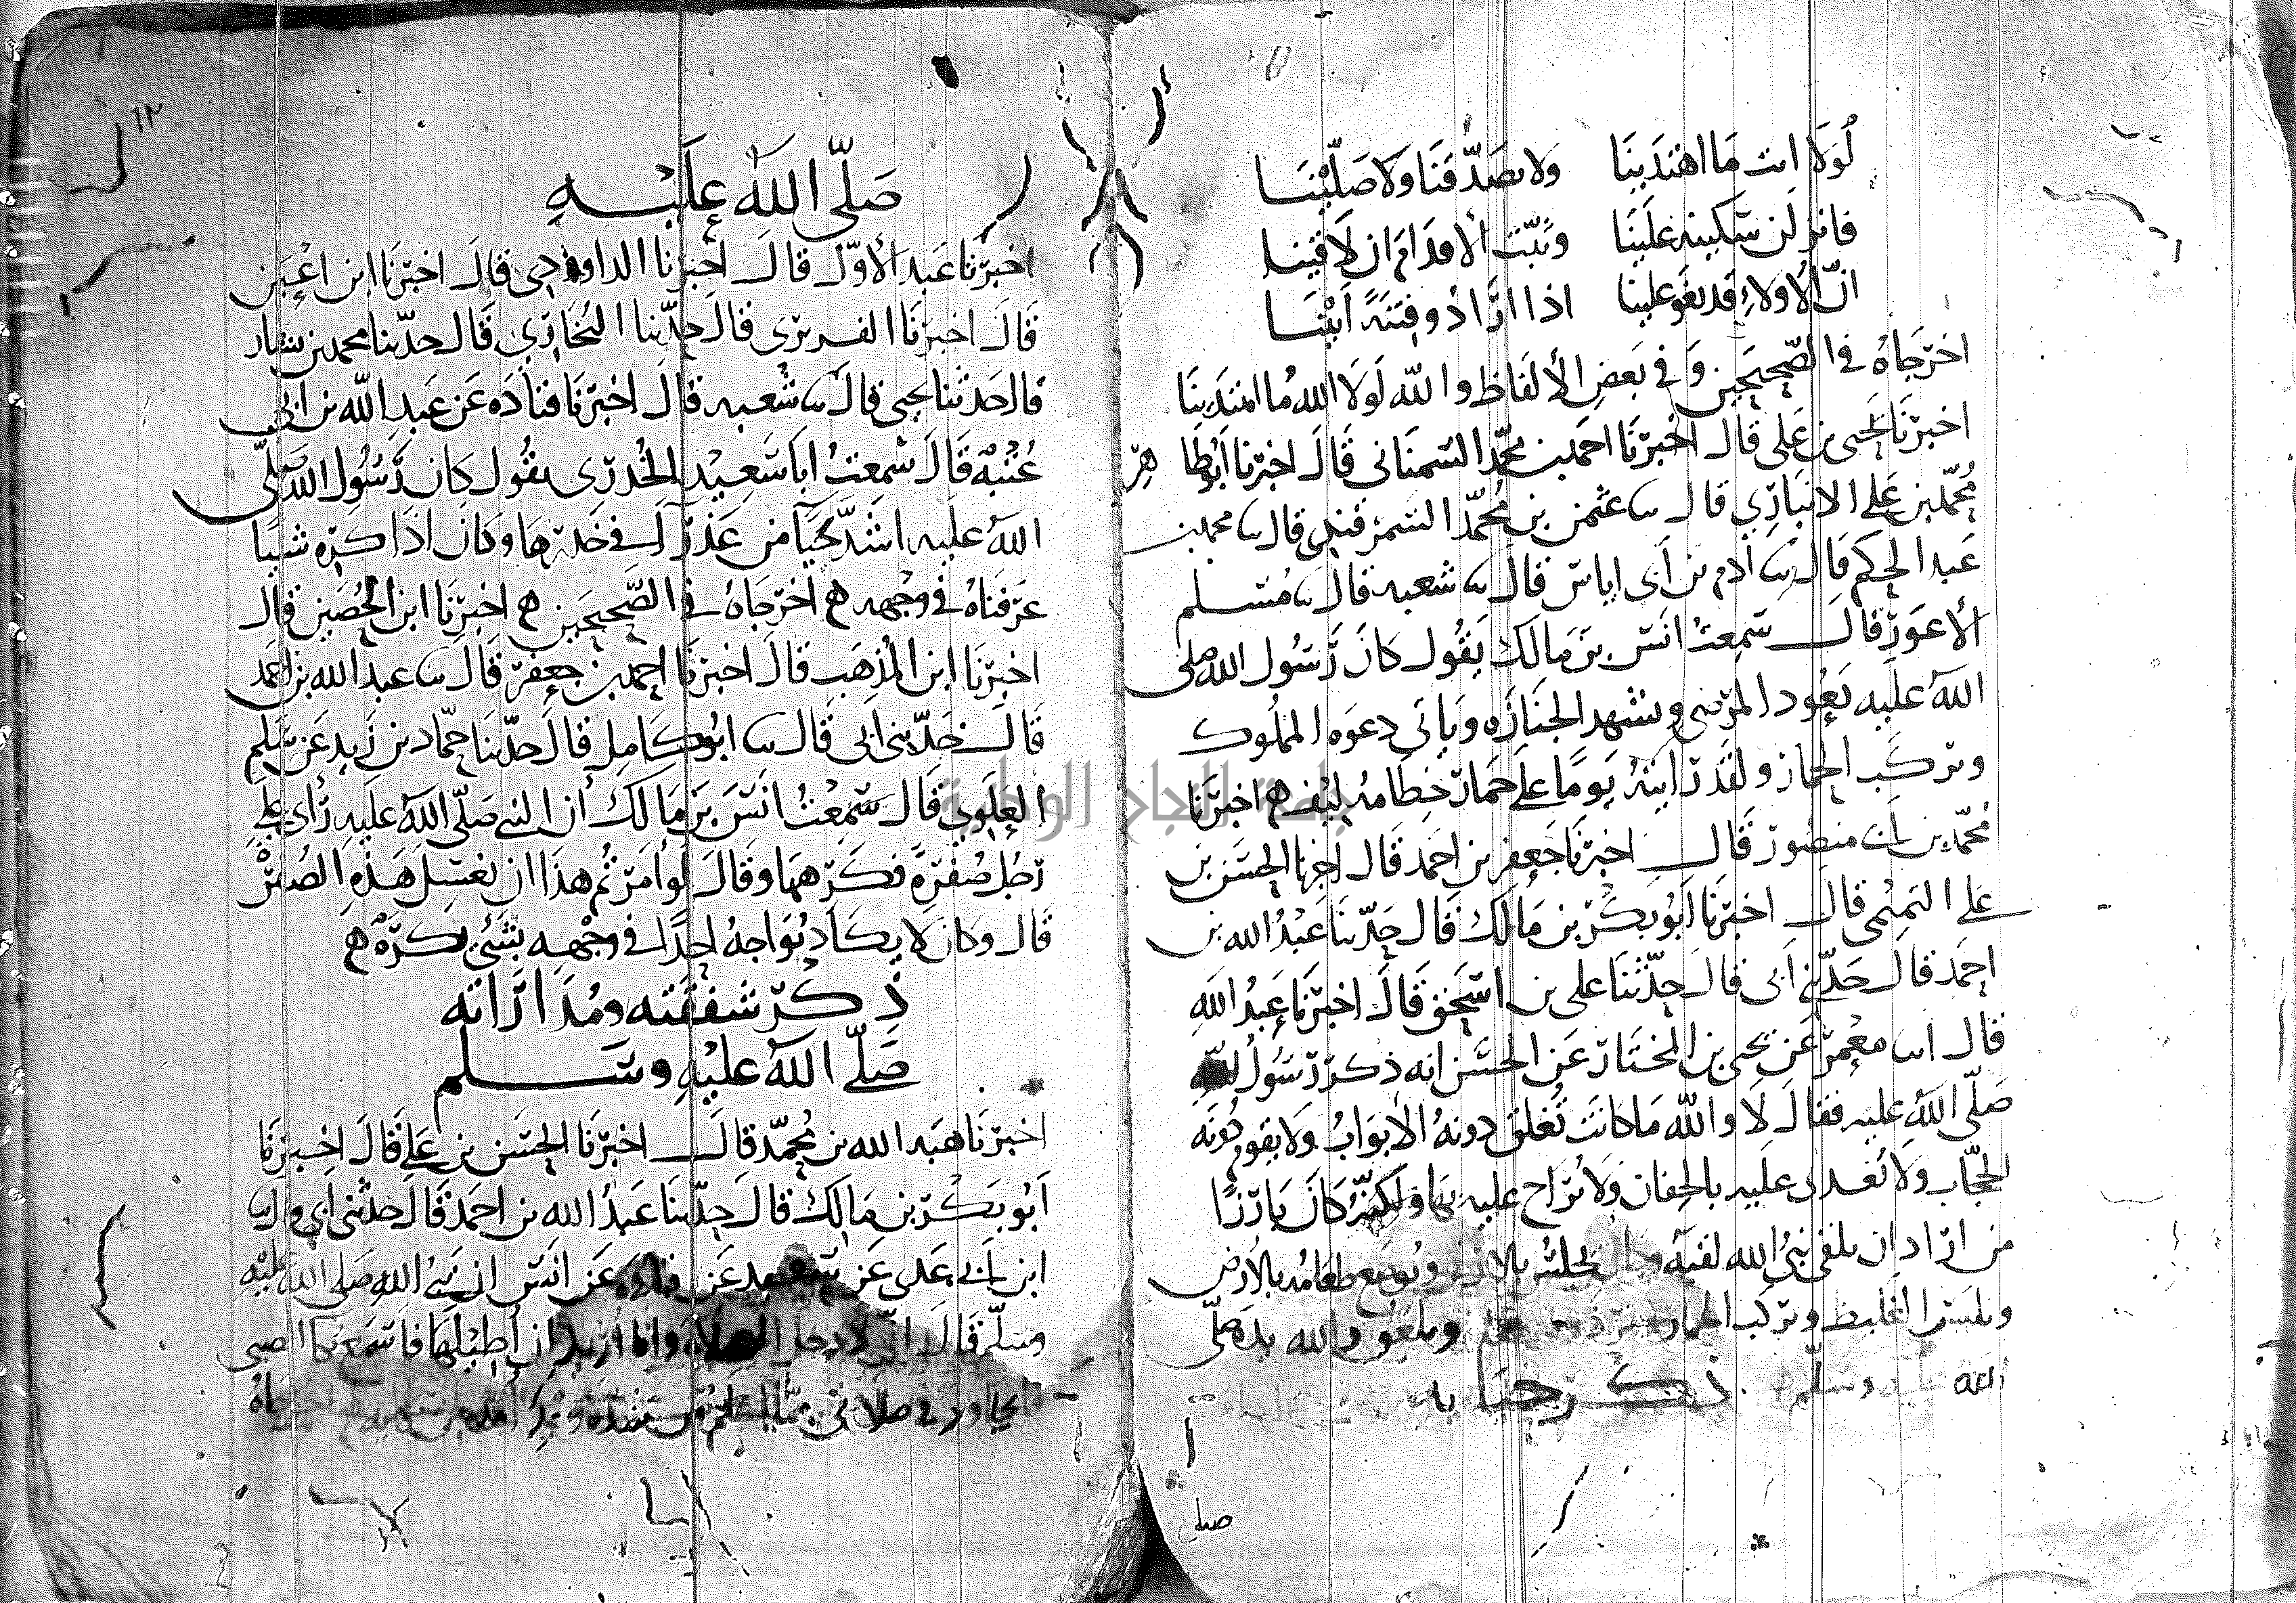 لولا انت ما اهتدينا ولا تصدقنا ولا صلينا
فانزلن سكينة علينا وثبت الاقدام ان لاقينا
ان الاولاء قد بغو علينا اذا ارادوا فتنة ابينا
اخرجاه في الصحيحين وفي بعض الالفاظ والله لولا الله ما اهتدينا
اخبرنا يحيى بن علي قال اخبرنا احمد بن محمد السمناني قال اخبرنا ابو طاهر
محمد بن علي الانباري قال نا عثمن بن محمد السمرقندي قال نا محمد بن
عبد الحكم قال نا ادم بن ابي اياس قال نا شعبه قال نا مسلم
الاعور قال سمعت انس بن مالك يقول كان رسول الله صلى
الله عليه يعود المرضى ويشهد الجنازه وياتي دعوه المملوك
ويركب الحمار ولقد رايته يوما على حمار خطامه ليف هـ اخبرنا
محمد بن منصور قال اخبرنا جعفر بن احمد قال اخبرنا الحسن بن
علي التميمي قال اخبرنا ابو بكر بن مالك قال حدثنا عبد الله بن
احمد قال حدثني ابي قال حدثنا علي بن اسحق قال اخبرنا عبد الله
قال انا معمر عن يحيى بن المختار عن الحسن انه ذكر رسول الله
صلى الله عليه فقال لا والله ما كانت تغلق دونه الابواب ولا يقوم دونه
الحجاب ولا يغدى عليه بالجفان ولا يراح عليه بها ولكنه كان بارزا
من اراد ان يلقى نبي الله لقيه وكان يجلس بالارض ويوضع طعامه بالارض
ويلبس الغليظ ويركب الحمار ويلعق والله يده صلى
الله عليه وسلم ذكر حيايه
صلى
صلى الله عليه
١٢
اخبرنا عبد الاول قال اخبرنا الداودي قال اخبرنا ابن اعين
قال اخبرنا الفربري قال حدثنا البخاري قال حدثنا محمد بن بشار
قال حدثنا يحيى قال نا شعبه قال اخبرنا قتاده عن عبد الله بن ابي
عتبه قال سمعت ابا سعيد الخدري يقول كان رسول الله صلى
الله عليه اشد حيآ من عذرآ في خدرها وكان اذا كره شيا
عرفناه في وجهه هـ اخرجاه في الصحيحين هـ اخبرنا ابن الحصين قال
اخبرنا ابن المذهب قال اخبرنا احمد بن جعفر قال نا عبد الله بن احمد
قال حدثني ابي قال نا ابو كامل قال حدثنا حماد بن زيد عن سلم
العلوي قال سمعت انس بن مالك ان النبي صلى الله عليه راى على
رجل صفرة فكرهها وقال لو امرتم هذا ان يغسل هذه الصفرة
قال وكان لا يكاد يواجه احدا في وجهه بشي يكرهه هـ
ذكر شفقته ومداراته
صلى الله عليه وسلم
اخبرنا هبه الله بن محمد قال اخبرنا الحسن بن علي قال اخبرنا
ابو بكر بن مالك قال حدثنا عبد الله بن احمد قال حدثني ابي قال نا
ابن ابي عدي عن سعيد عن قتاده عن انس ان نبي الله صلى الله عليه
وسلم قال اني لادخل الصلاة وانا اريد ان اطيلها فاسمع بكا الصبي
فاتجاوز في صلاتي مما اعلم من شده وجد امه من بكايه هـ اخرجاه
جامعة النجاح الوطنية